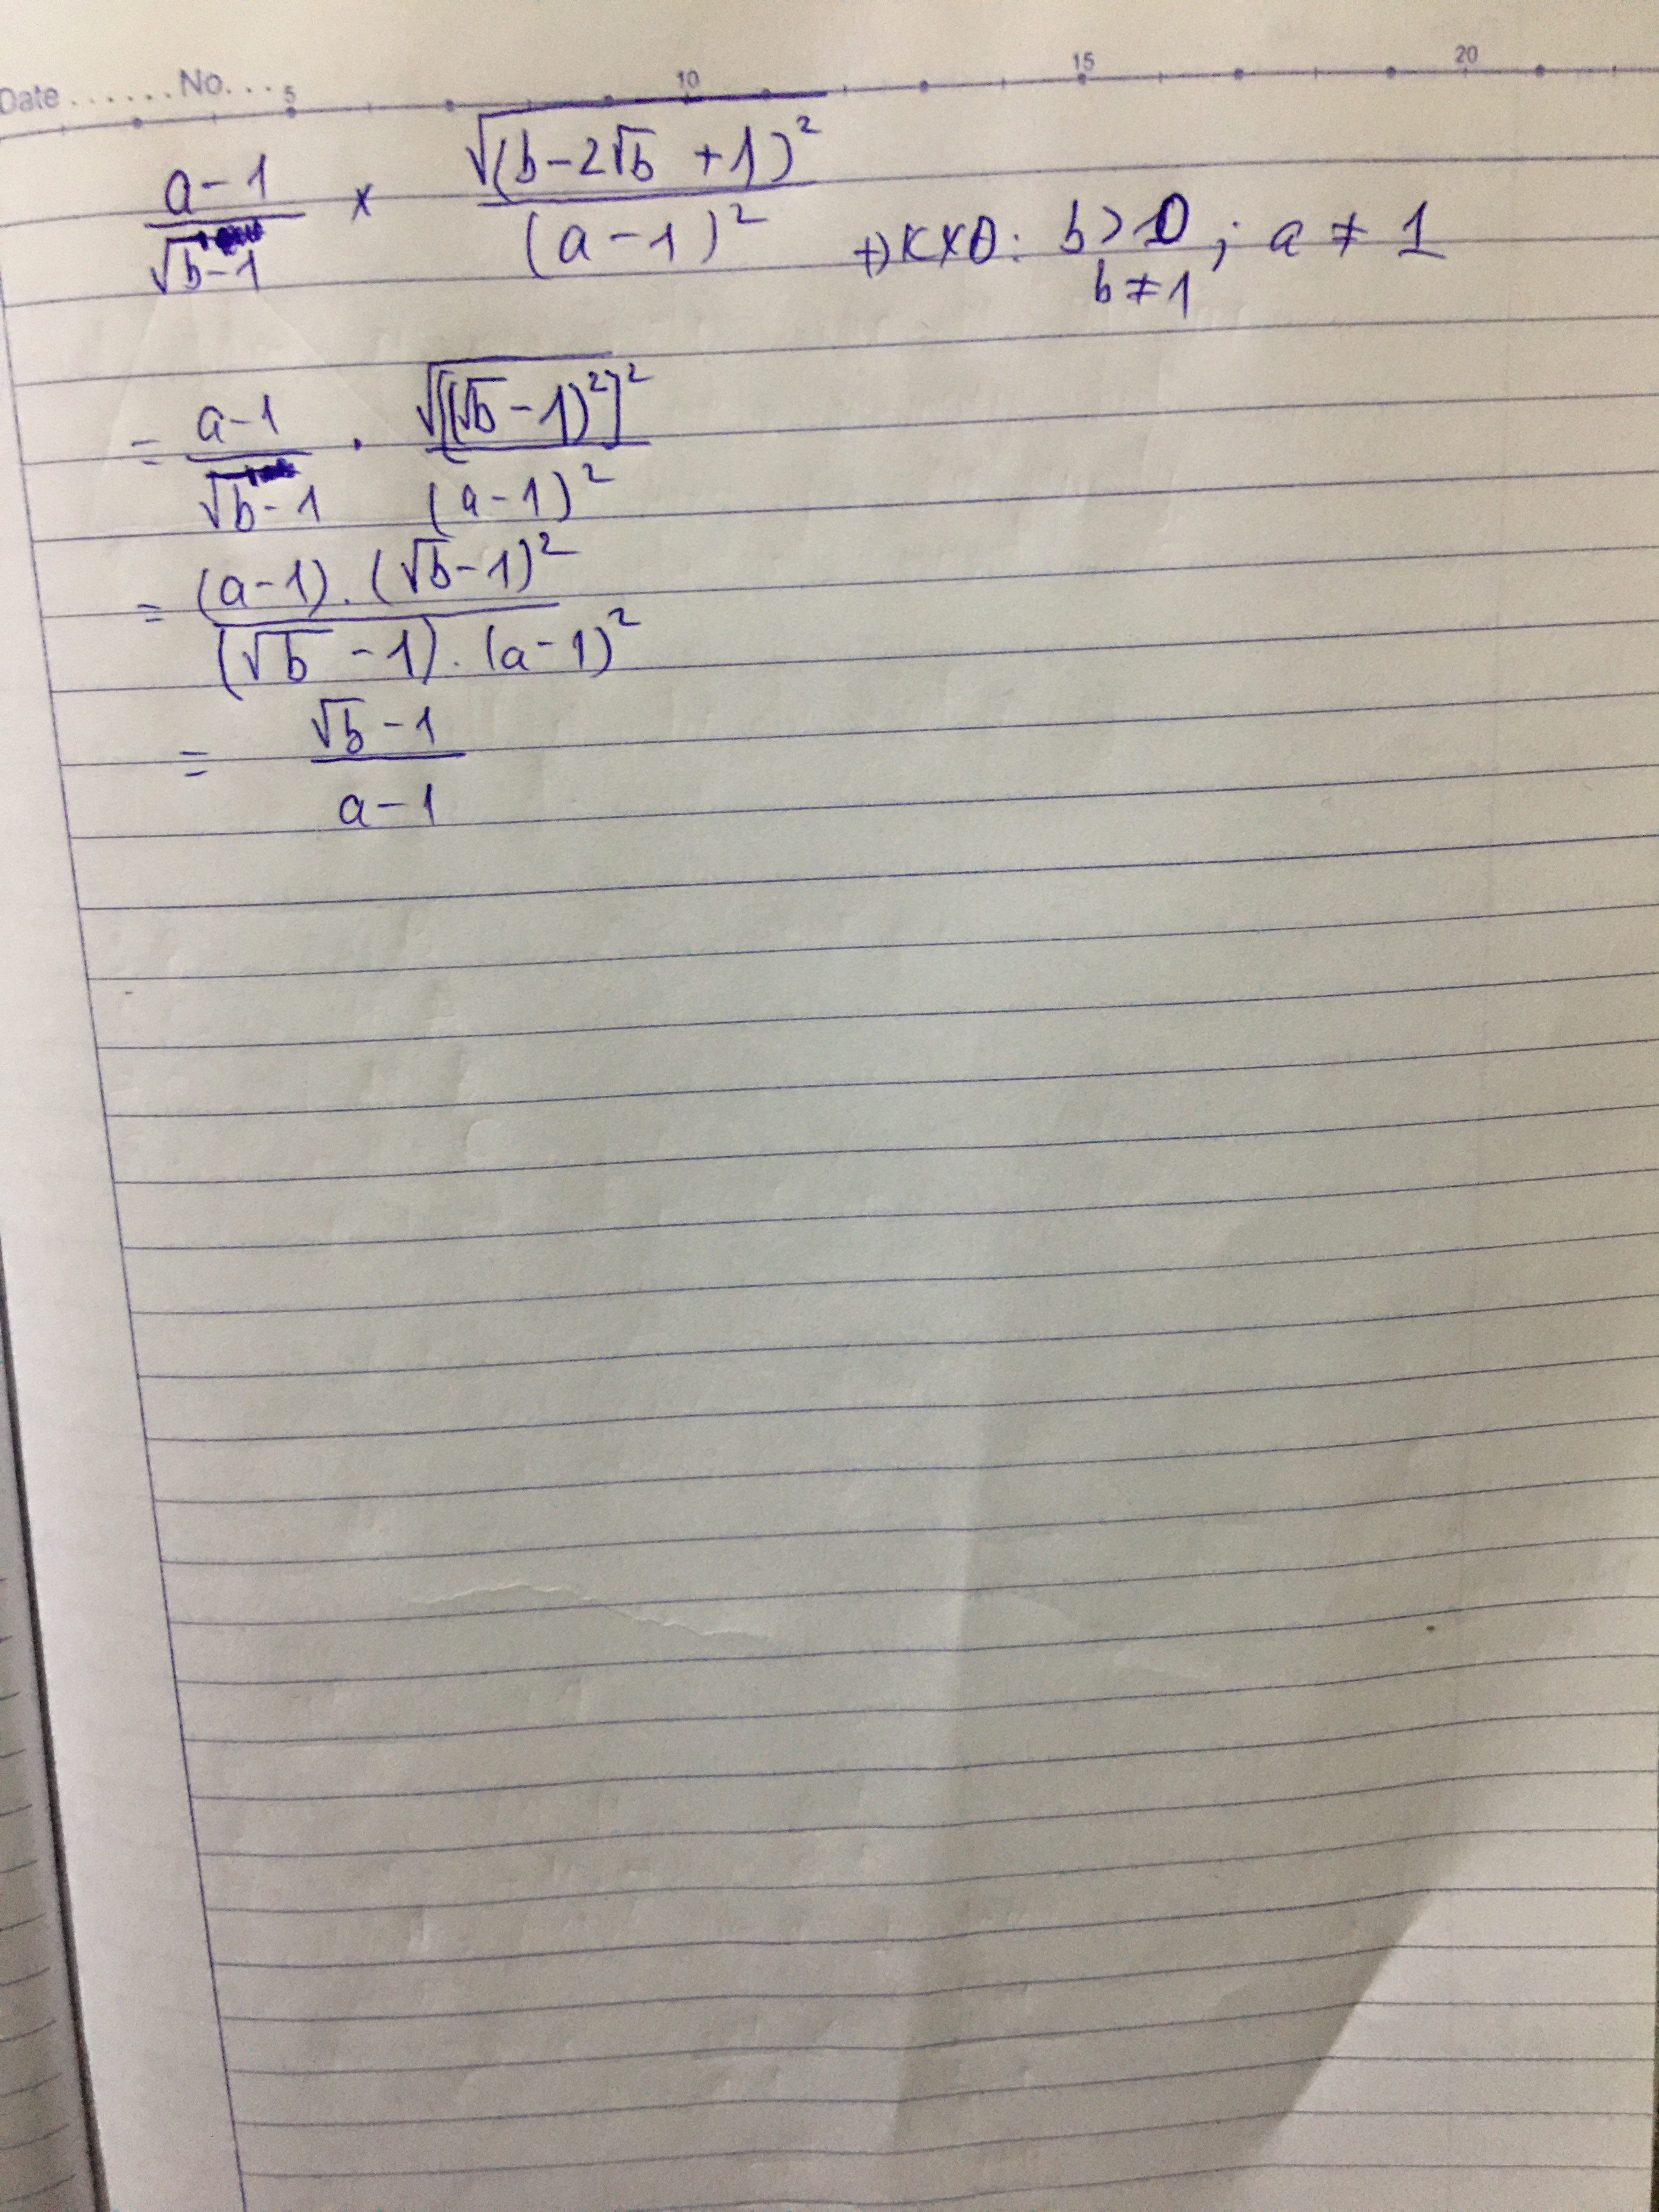 Date ...... No. ... 5 10 15 20
a-1/√b-1 × √(b-2√b+1)²/(a-1)² +) KXĐ: b>0; a≠1
b≠1
= a-1/√b-1 . √[(√b-1)²]²/(a-1)²
= (a-1).(√b-1)²/(√b-1).(a-1)²
= √b-1/a-1